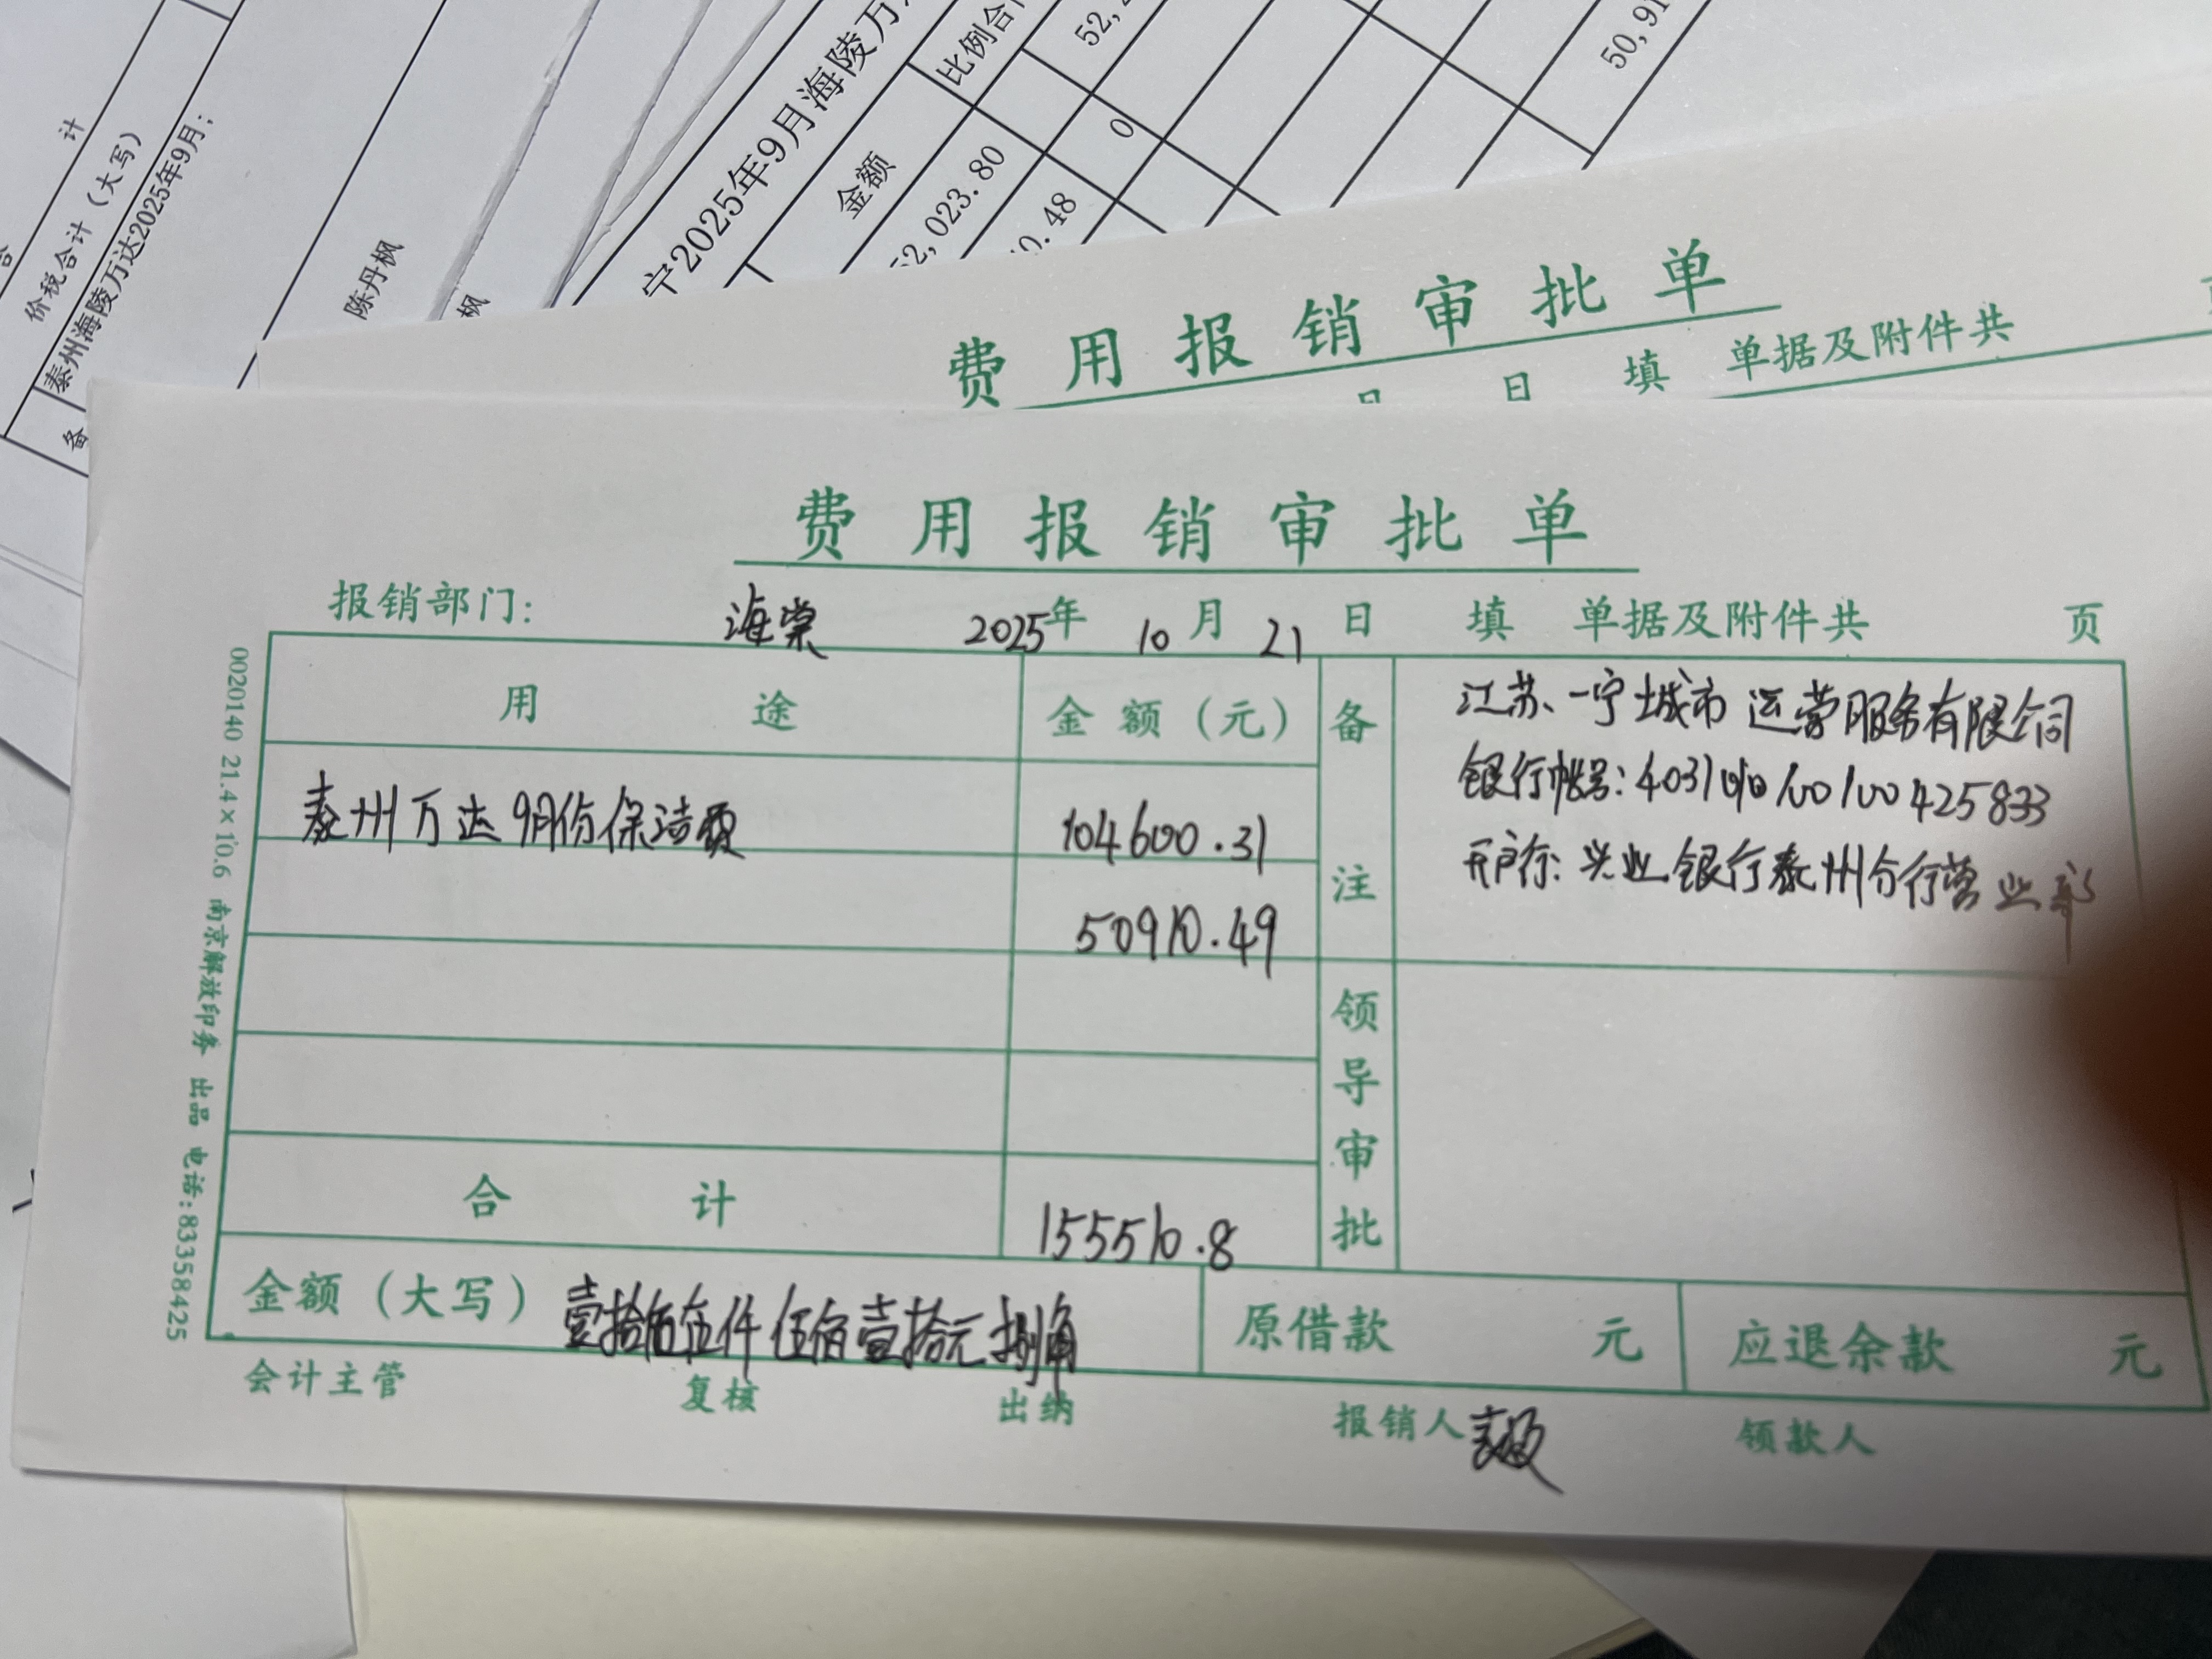 计
价税合计（大写）
泰州海陵万达2025年9月；
备
陈丹枫
枫
宁2025年9月海陵万
金额
比例合
52,
2,023.80
0
0.48
50,91
费用报销审批单
日 填 单据及附件共
费用报销审批单
报销部门: 海棠 2025年 10月 21日 填 单据及附件共 页
用途 金额（元） 备注
江苏一宁城市运营服务有限公司
银行帐号:
开户行: 兴业银行泰州分行营业部
泰州万达9月份保洁费 104600.31
50910.49
领导审批
合计 155510.8
金额（大写） 壹拾伍伍仟伍佰壹拾元捌角 原借款 元 应退余款 元
会计主管 复核 出纳 报销人 领款人
0020140 21.4×10.6 南京解放印务 出品 电话:83358425